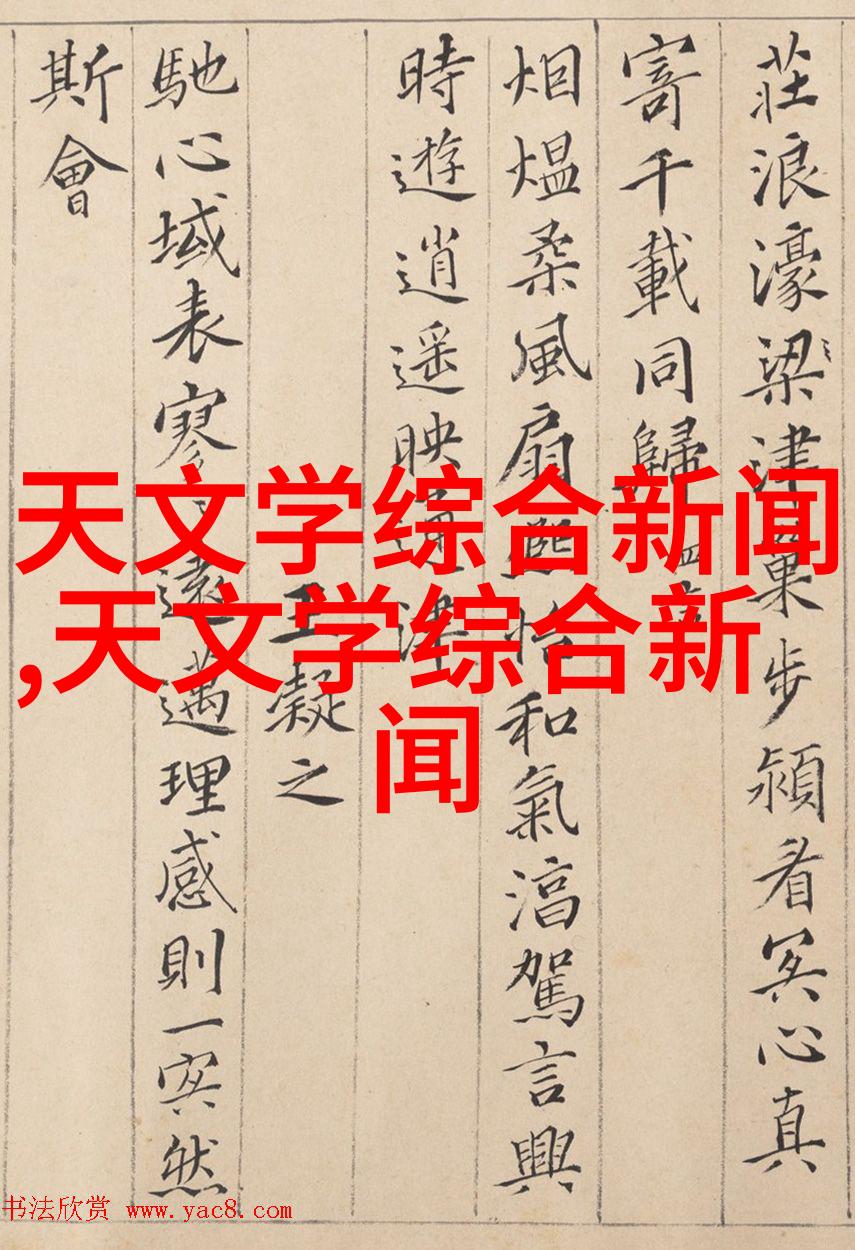 莊浪濠梁津巢步潁看冥心真
寄千載同歸
烟煴柔風扇熙怡和氣淯駕言興
時遊逍遥映通津
王凝之
馳心域表寥〻遠邁理感則一冥然
斯會
天文学综合新闻
,天文学综合新
闻
书法欣赏 www.yac8.com